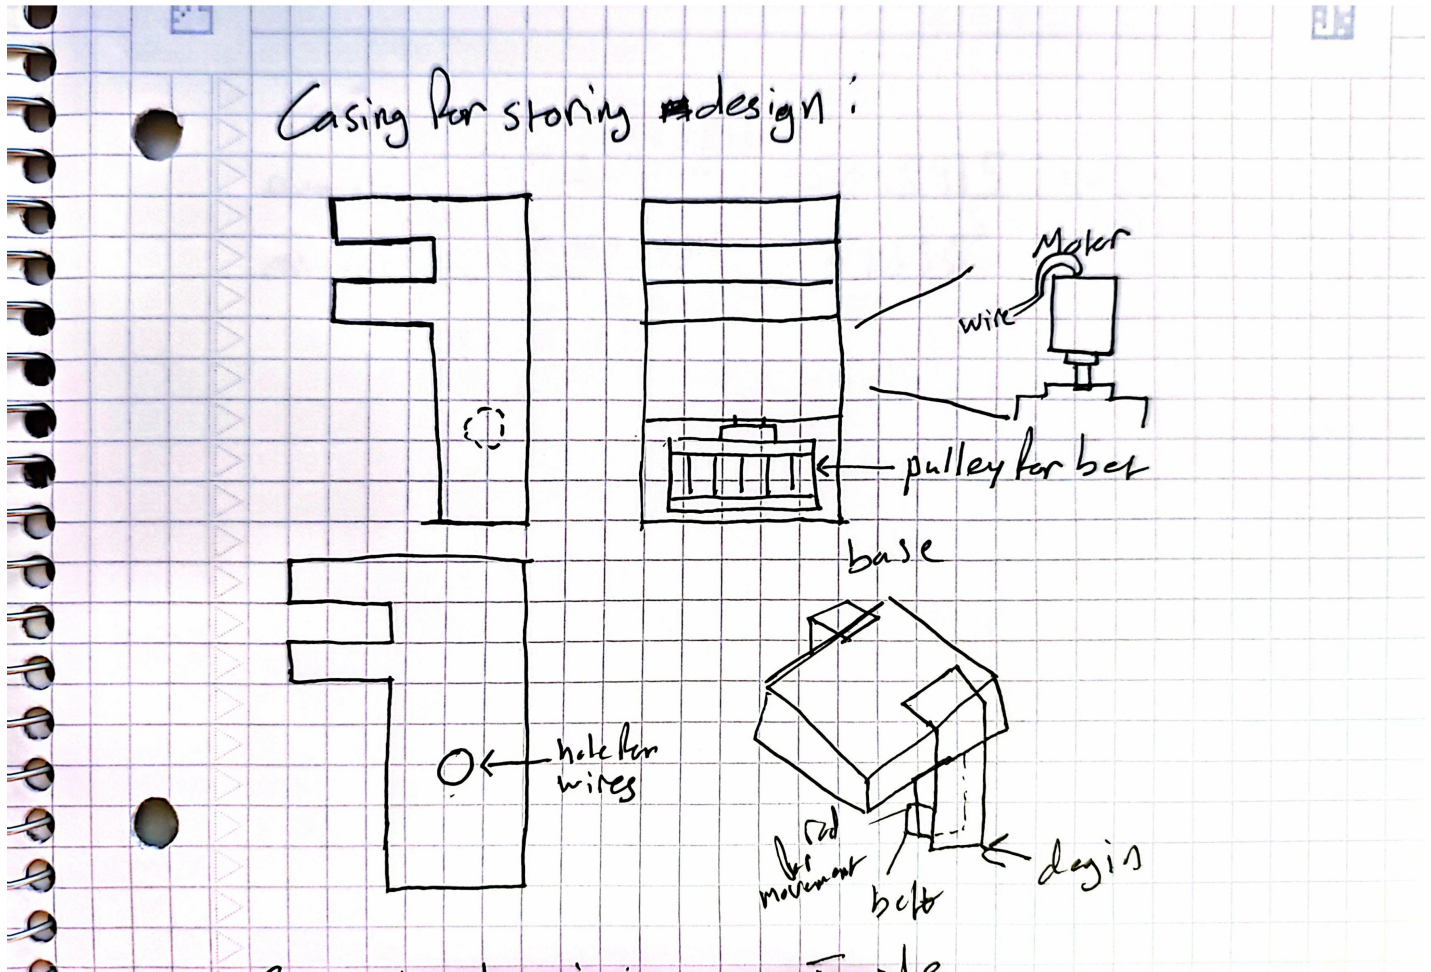 Casing for storing design :
Motor
wire
pulley for bet
base
hole for
wires
rod
for
movement
belt
degin